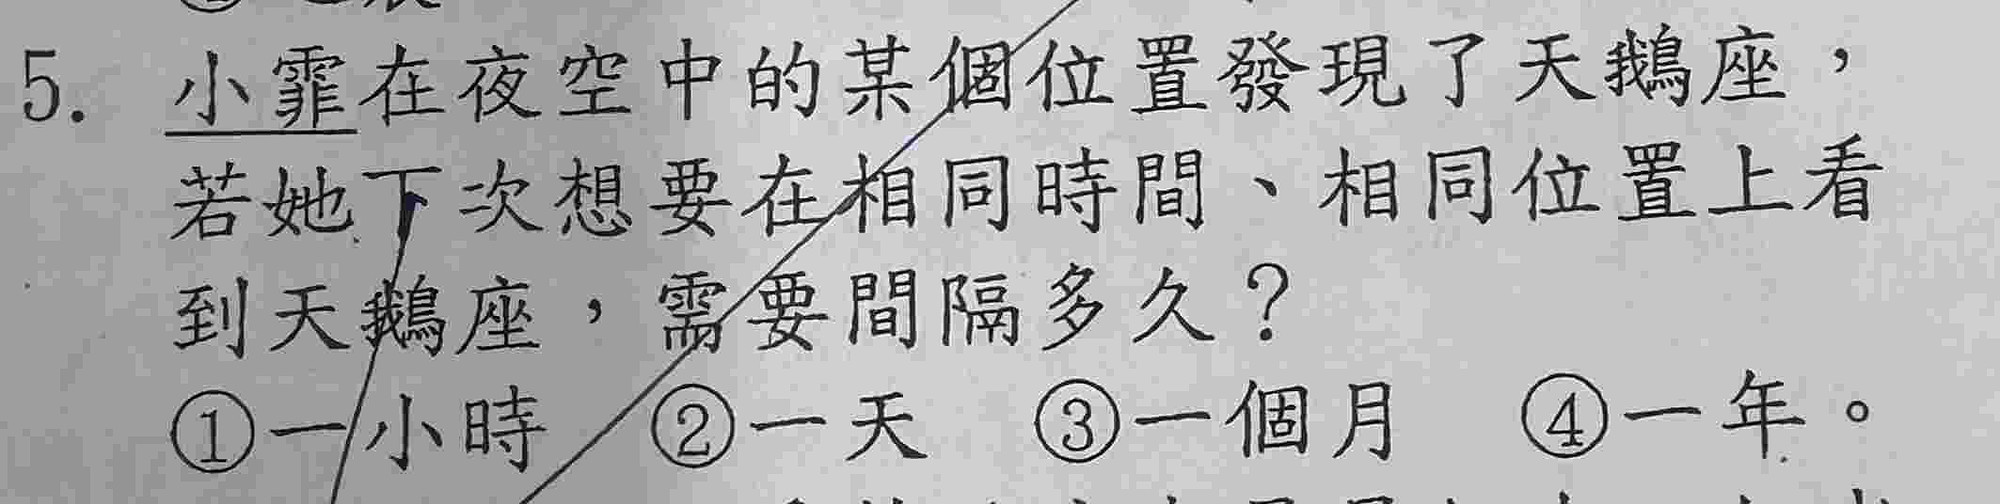 5. 小霏在夜空中的某個位置發現了天鵝座，
若她下次想要在相同時間、相同位置上看
到天鵝座，需要間隔多久？
①一小時 ②一天 ③一個月 ④一年。